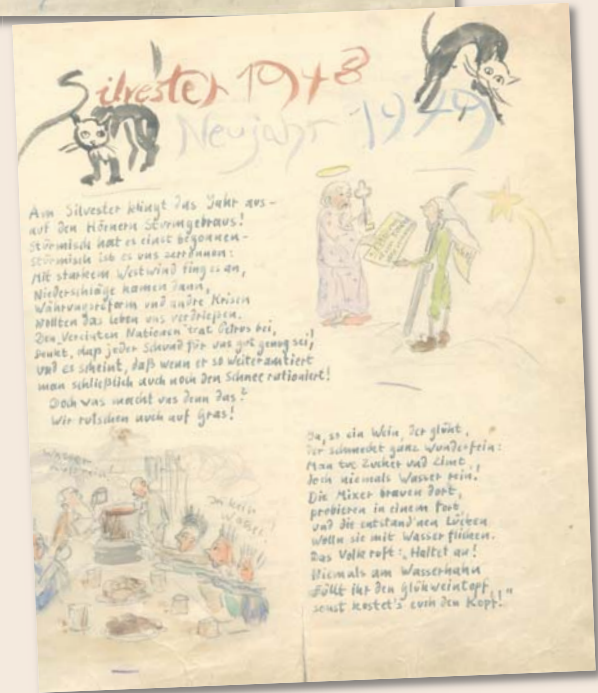 Silvester 1948
Neujahr 1949
Am Silvester klingt das Jahr aus -
auf den Hörnern Sturmgebraus!
Stürmisch hat es einst begonnen -
stürmisch ist es uns zerronnen:
Mit starkem Westwind fing es an,
Niederschläge kamen dann,
Währungsreform und andre Krisen
wollten das Leben uns verdrießen.
Den Vereinten Nationen trat Petrus bei,
denkt, daß jeder Schund für uns gut genug sei,
und es scheint, daß wenn er so weiter amtiert
man schließlich auch noch den Schnee rationiert!
Doch was macht uns denn das?
Wir rutschen auch auf Gras!
Ja, so ein Wein, der glüht,
der schmecket ganz wunderfein:
Man tue Zucker und Zimt,
doch niemals Wasser rein.
Die Mixer brauen dort,
probieren in einem fort,
und die entstand'nen Lücken
wolln sie mit Wasser flicken.
Das Volk ruft: „Haltet an!
Niemals am Wasserhahn
füllt ihr den Glühweintopf,
sonst kostet's euch den Kopf!"
Wasser
kein
Wasser